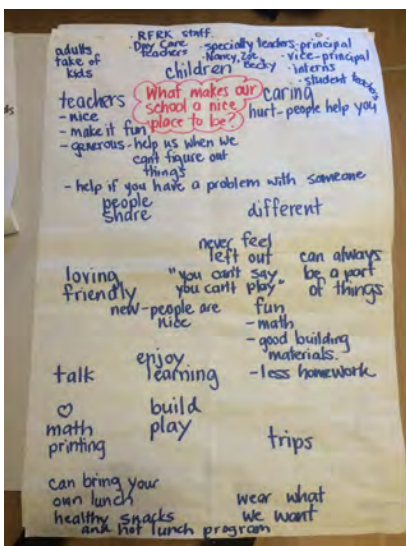 · RFRK staff
· Day Care teachers
· specialty teachers
· principal
adults
take of
kids
Nancy, Zoe,
Becky
· vice-principal
· interns
· student teachers
children
What makes our
school a nice
place to be?
teachers
- nice
- make it fun
- generous - help us when we
cant figure out
things
- help if you have a problem with someone
caring
hurt - people help you
people
share
different
never feel
left out
"you can't say
you can't play"
can always
be a part
of things
loving
friendly
new - people are
nice
fun
- math
- good building
materials.
- less homework
enjoy
learning
talk
♡
math
printing
build
play
trips
can bring your
own lunch
healthy snacks
and hot lunch program
wear what
we want